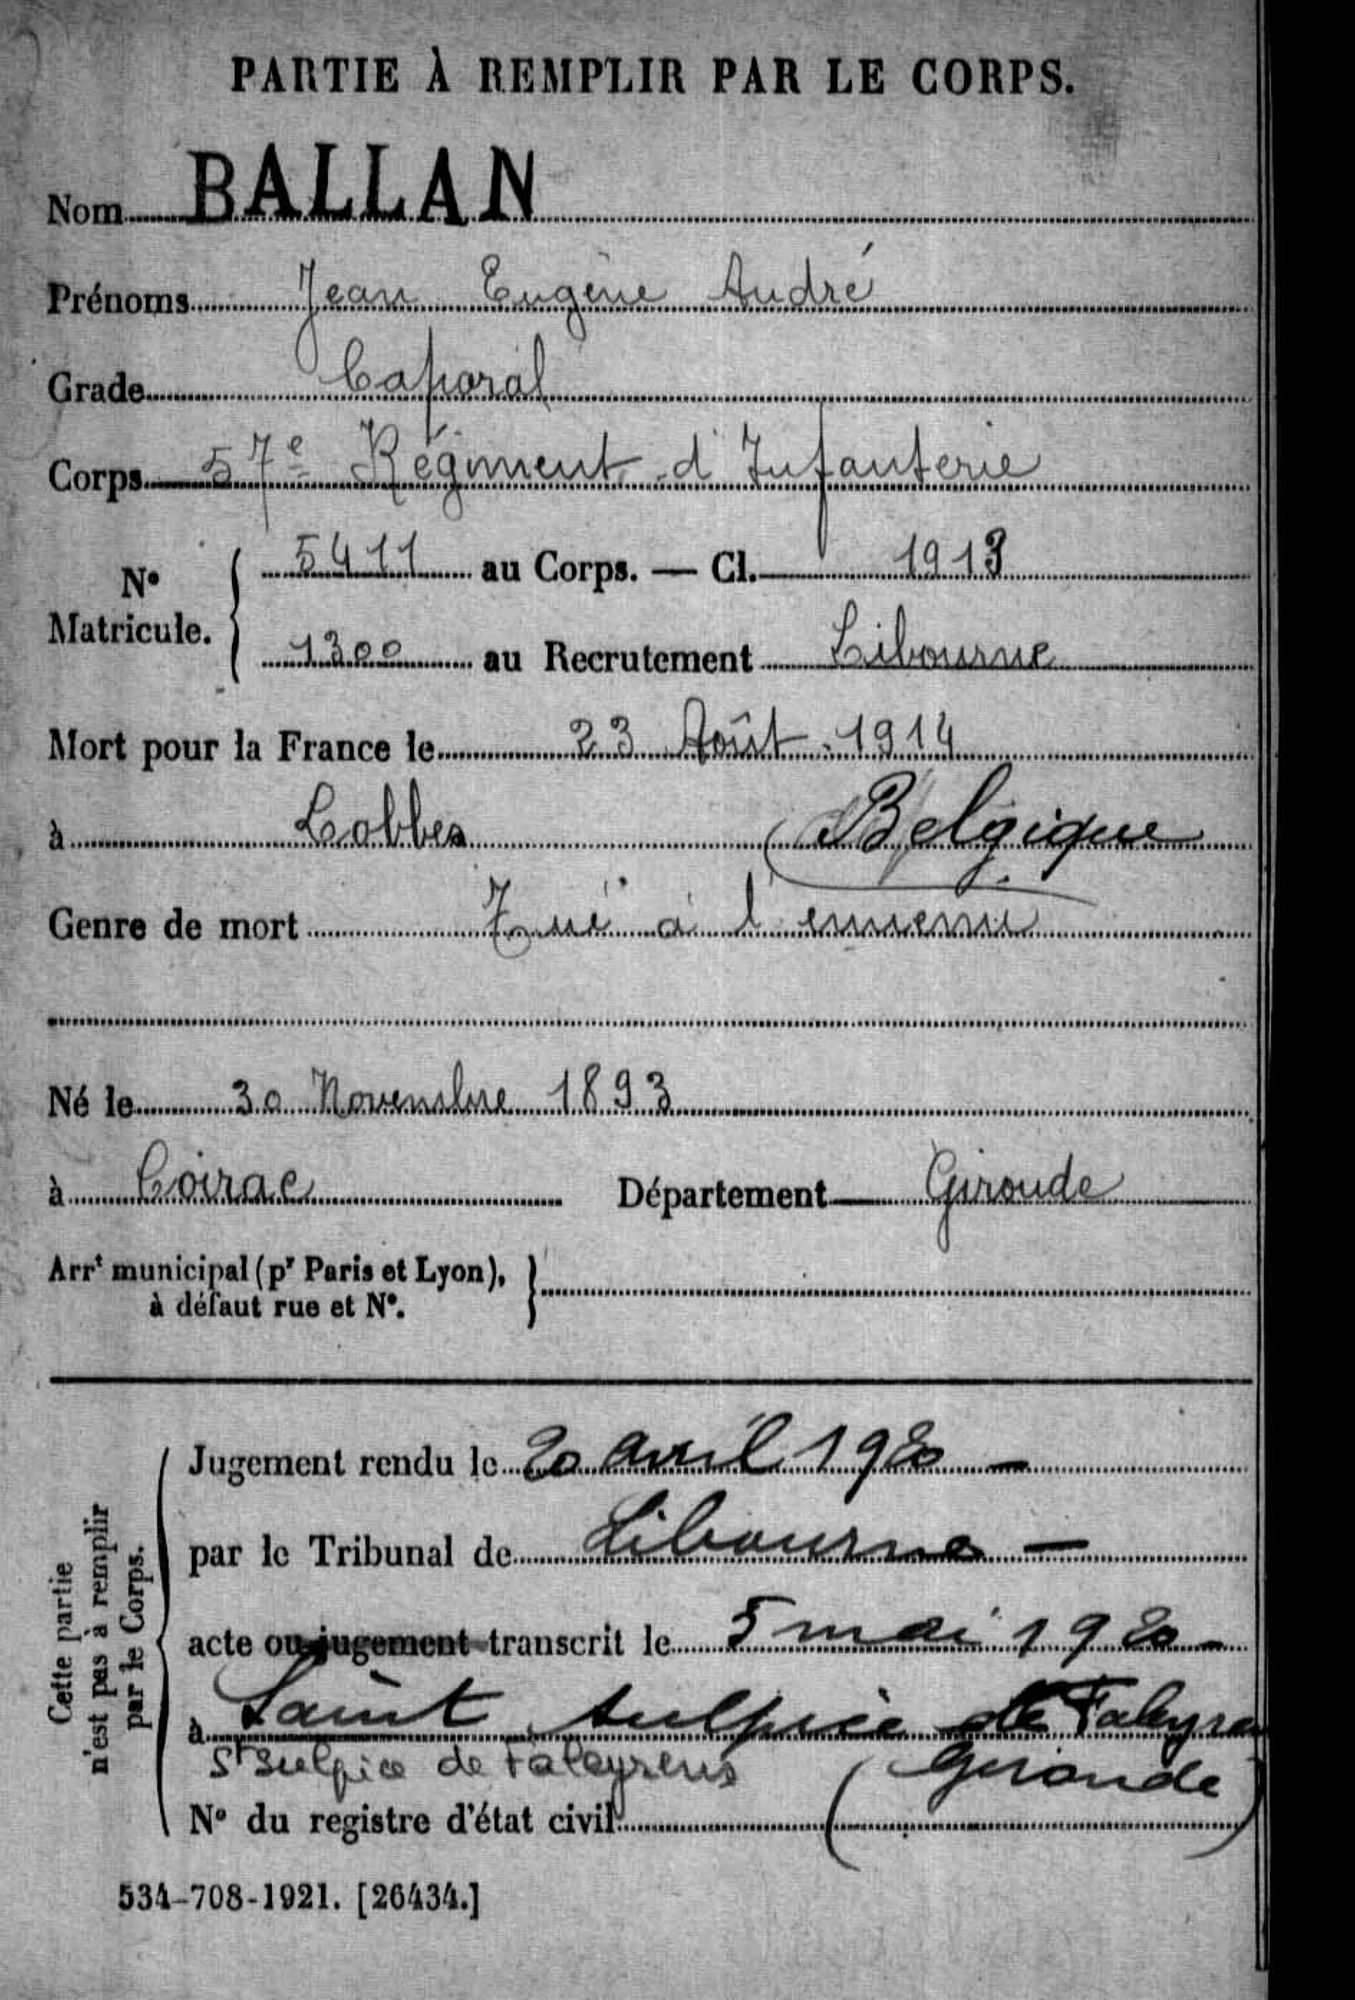 PARTIE À REMPLIR PAR LE CORPS.
Nom BALLAN
Prénoms Jean Eugène André
Grade Caporal
Corps 57e Régiment d'Infanterie
N° Matricule. { 5411 au Corps. — Cl. 1913
1300 au Recrutement Libourne
Mort pour la France le 23 Août 1914
à Lobbes (Belgique
Genre de mort Tué à l'ennemi
Né le 30 Novembre 1893
à Coirac Département Gironde
Arrt municipal (pr Paris et Lyon), }
à défaut rue et N°.
Cette partie
n'est pas à remplir
par le Corps.
Jugement rendu le 20 avril 1920 —
par le Tribunal de Libourne —
acte ou jugement transcrit le 5 mai 1920 -
à Saint Sulpice de Faleyrens
St Sulpice de Faleyrens (Gironde)
N° du registre d'état civil
534-708-1921. [26434.]